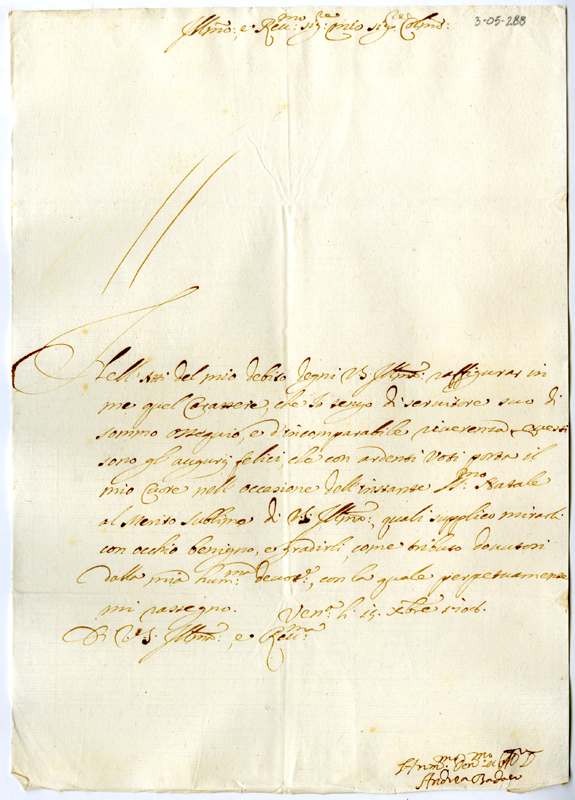 Illmo: e Revmo: Sigre: mio Sigre Colmo:
3-05-288
Nell'Atti del mio debito degni VS Illma: raffigurar in
me quel Carattere, che Io tengo di servitore suo di
sommo ossequio, e d'incomparabile riverenza, e questi
sono gl'augurj felici che con ardenti Voti porta il
mio Cuore nell'occasione dell'instante Natale
al Merito Sublime di VS Illma: quali supplico mirarli
con occhio benigno, e gradirli, come tributo dovutoli
dalla mia humma devote:, con la quale perpetuamente
mi rassegno. Vena: li: 15. Xbre 1706.
Di VS. Illma:, e Revma:
Hummo Devmo
Andrea Badoer